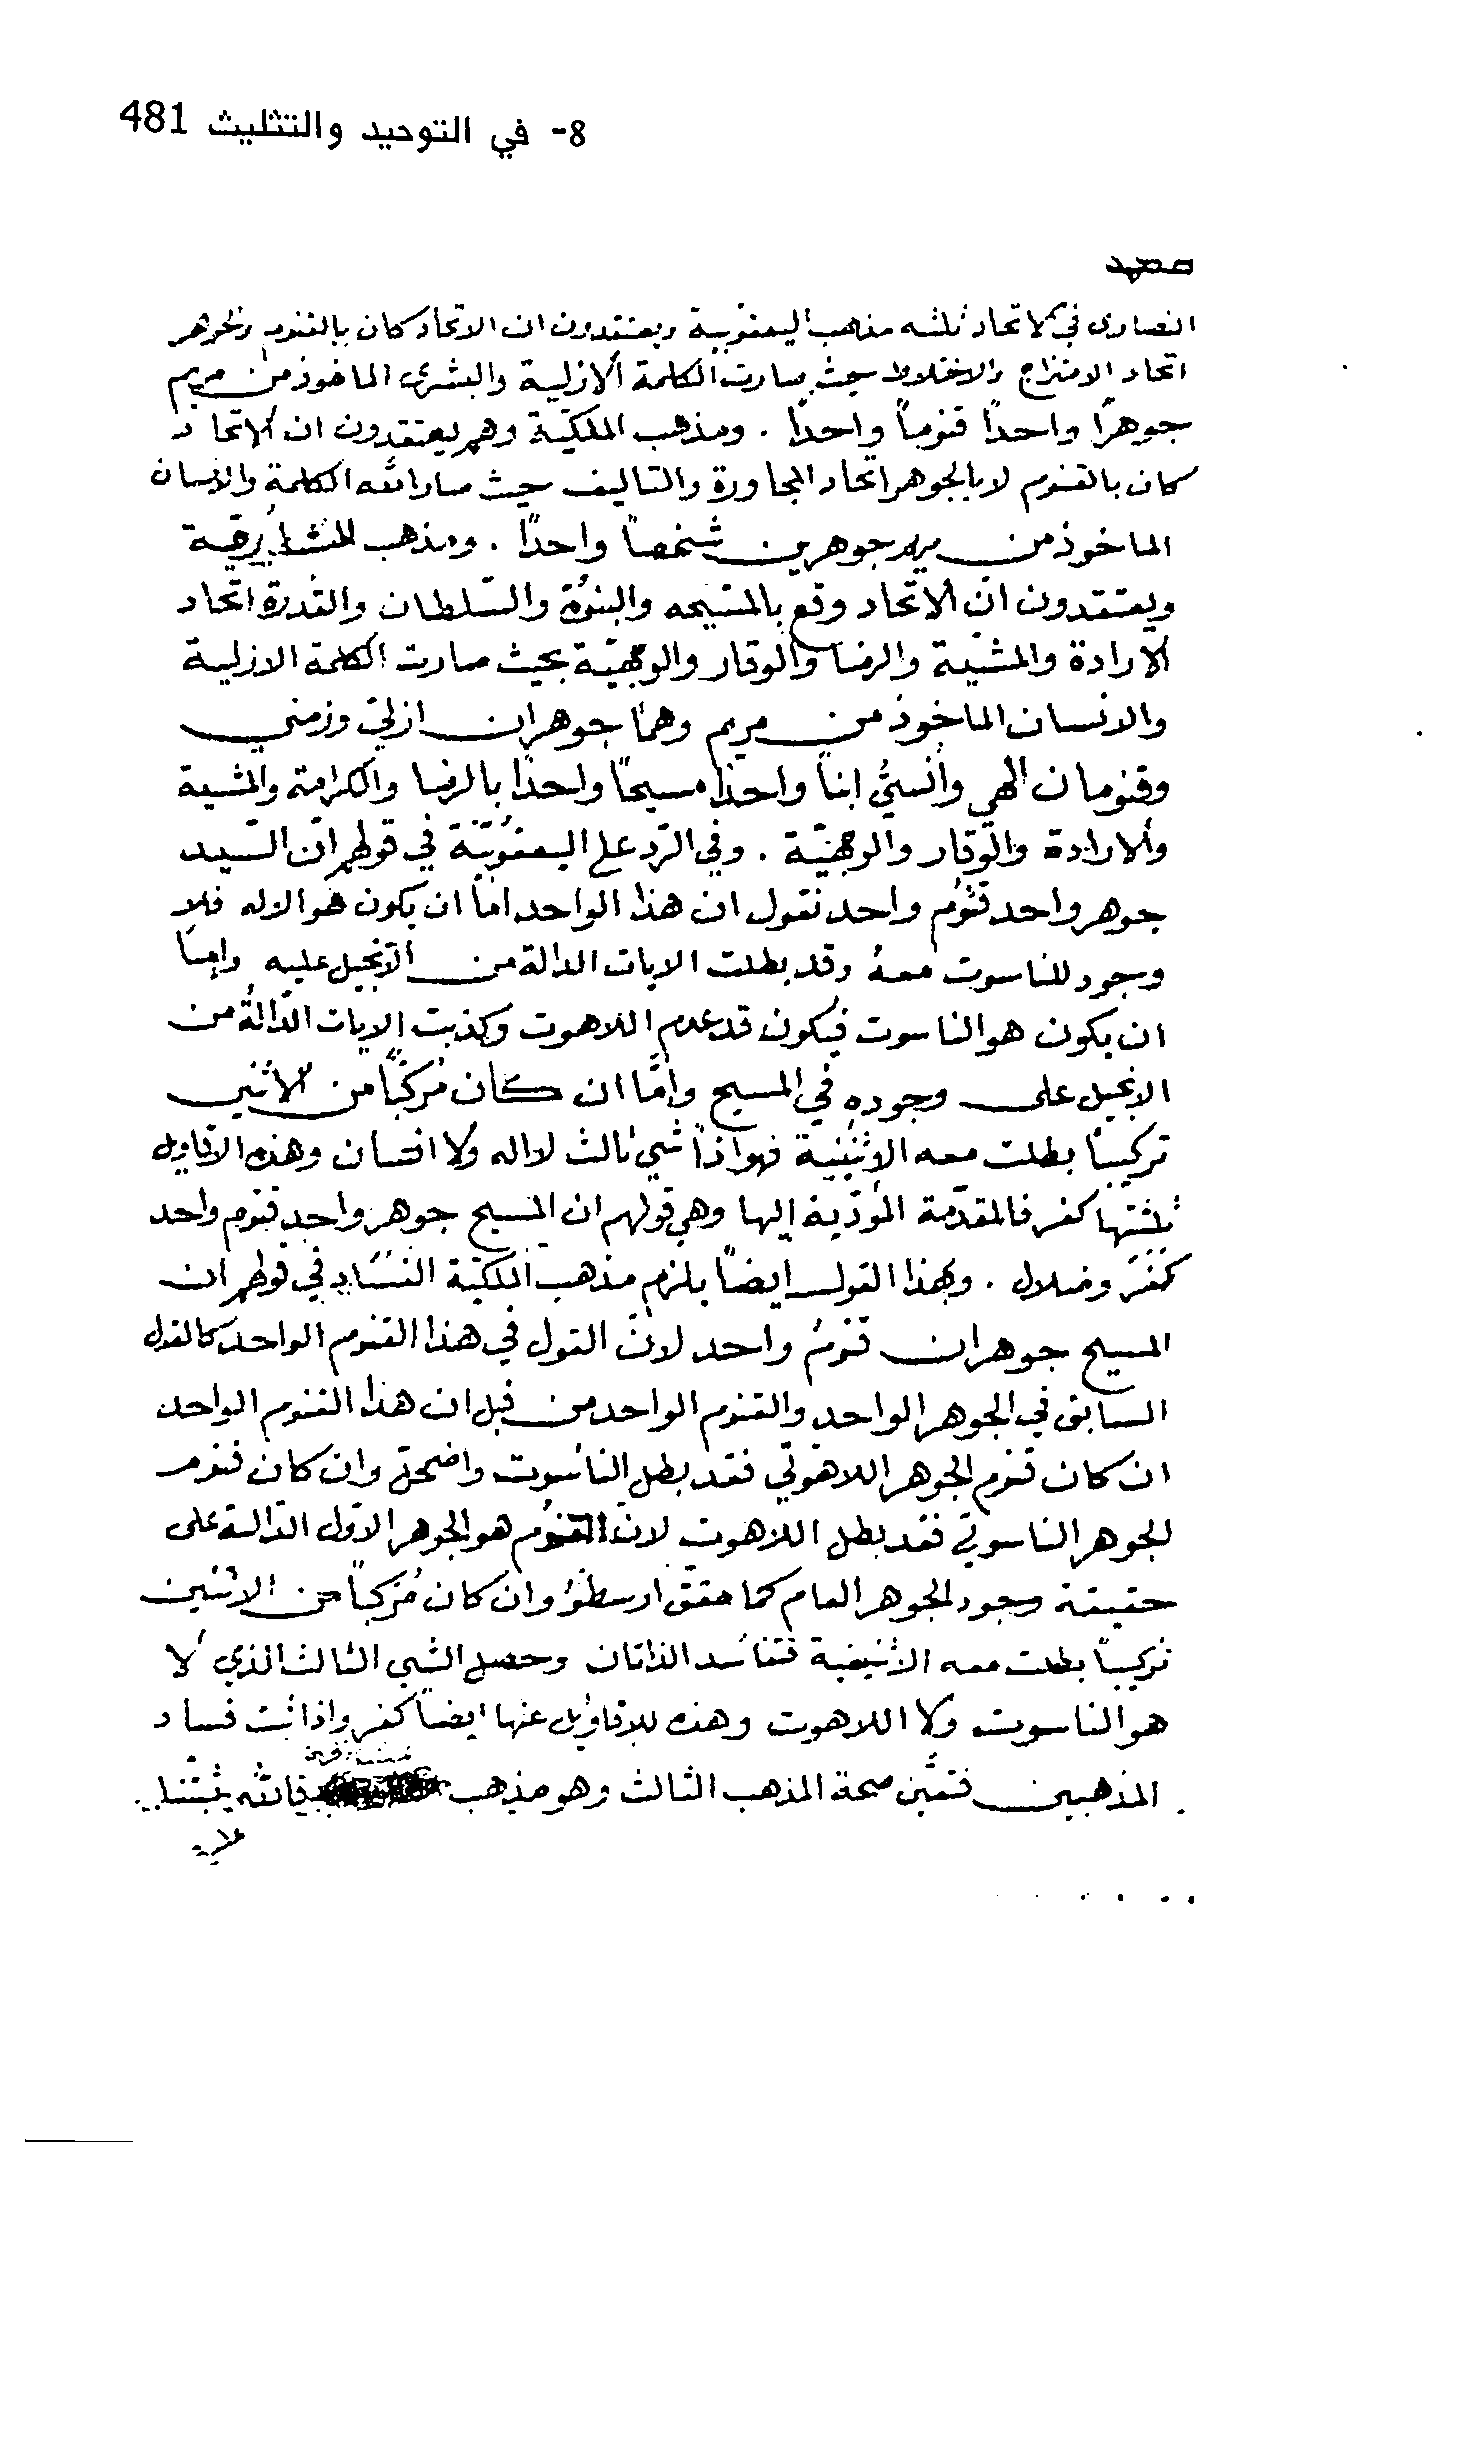 8- في التوحيد والتثليث 481
النصارى في الاتحاد ثلثه مذهب اليعقوبية ويعتقدون ان الاتحاد كان بالقنوم والجوهر
اتحاد الامتزاج والاختلاط حيث صارت الكلمة الازلية والبشرى الماخوذ من مريم
جوهرًا واحدًا قنوماً واحدًا . ومذهب الملكيّة وهم يعتقدون ان الاتحاد
كان بالقنوم لا بالجوهر اتحاد المجاورة والتاليف حيث صار الله الكلمة والانسان
الماخوذ من مريم جوهرين شخصاً واحدًا . ومذهب المشارقة
ويعتقدون انّ الاتحاد وقع بالمشيحه والبنوّة والسّلطان والقدرة اتحاد
الارادة والمشيّة والرضا والوقار والوجهيّة بحيث صارت الكلمة الازلية
والانسان الماخوذ من مريم وهما جوهران ازليّ وزمني
وقنومان الهي وانسيٌّ ابناً واحدًا مسيحًا واحدًا بالرضا والكرامة والمشية
والارادة والوقار والوجهيّة . وفي الرّد على اليعقوبيّة في قولهم انّ السّيد
جوهر واحد قنوم واحد نقول ان هذا الواحد امّا ان يكون هو الاله فلا
وجود للناسوت معهُ وقد بطلت الايات الدالة من الانجيل عليه وامّا
ان يكون هو الناسوت فيكون قد عدم اللاهوت وكذبت الايات الدّالة من
الانجيل على وجوده في المسيح وامّا ان كان مُركّباً من الاثنين
تركيباً بطلت معه الاثنينية فهو اذاً شي ثالث لا اله ولا انسان وهذه الاقاويل
ثلثتها كفر فالمقدّمة المؤدّية إليها وهي قولهم ان المسيح جوهر واحد قنوم واحد
كفرٌ وضلال . وبهذا القول ايضاً يلزم مذهب الملكيّة الفساد في قولهم ان
المسيح جوهران قنومٌ واحد لانّ القول في هذا القنوم الواحد كالقول
السابق في الجوهر الواحد والقنوم الواحد من قبل ان هذا القنوم الواحد
ان كان قنوم الجوهر اللاهوتي فقد بطل الناسوت واضمحل وان كان قنوم
الجوهر الناسوتي فقد بطل اللاهوت لانّ القنوم هو الجوهر الاوّل الدّالة على
حقيقة وجود الجوهر العام كما حقق ارسطوُ وان كان مُركّباً من الاثنين
تركيباً بطلت معه الاثنينية فتفاسد الذاتان وحصل الشي الثالث الذي لا
هو الناسوت ولا اللاهوت وهذه الاقاويل عنها ايضاً كفر واذا ثبت فساد
المذهبين فتعيّن صحة المذهب الثالث وهو مذهب المشارقة فالله يثبّتنا
عليه